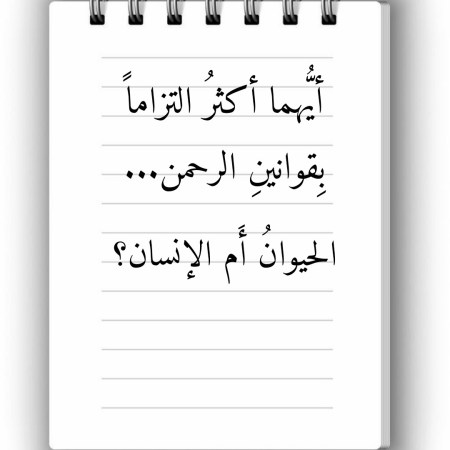 أيُّهما أكثرُ التزاماً
بِقوانينِ الرحمن...
الحيوانُ أَم الإنسان؟